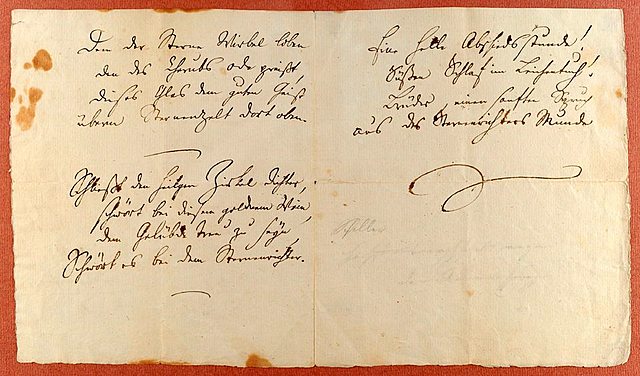 Den der Sterne Wirbel loben
den des Cherubs Ode preißt,
dieses Glas dem guten Geist
überm Sternenzelt dort oben.
Schließt den heilgen Zirkel dichter,
schwört bei diesem goldnen Wein
dem Gelübde treu zu seyn
Schwört es bei dem Sternenrichter.
Eine helle Abschiedsstunde!
Süßen Schlaf im Leichentuch!
Brüder, einen sanften Spruch
aus des Sternenrichters Munde
Schiller